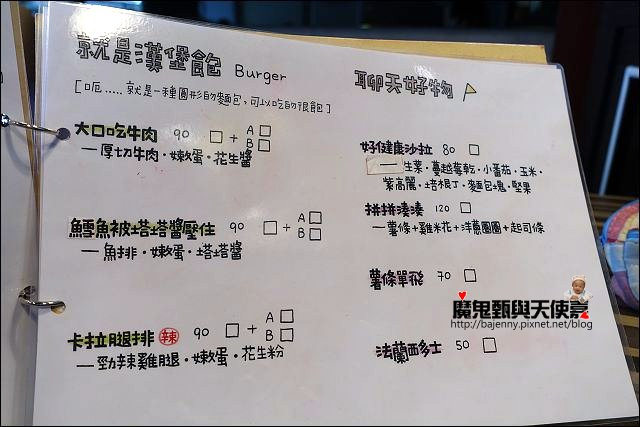 就是漢堡飽 Burger
[呃.....就是一種圓形的麵包,可以吃的很飽]
大口吃牛肉 90 □ + A □ B □
—厚切牛肉·嫩蛋·花生醬
鱈魚被塔塔醬壓住 90 □ + A □ B □
—魚排·嫩蛋·塔塔醬
卡拉腿排 辣 90 □ + A □ B □
—勁辣雞腿·嫩蛋·花生粉
聊天好物
好健康沙拉 80 □
—生菜·蔓越莓乾·小番茄·玉米·
紫高麗·培根丁·麵包塊·堅果
拼拼湊湊 120 □
—薯條+雞米花+洋蔥圈圈+起司條
薯條單飛 70 □
法蘭西多士 50 □
魔鬼甄與天使嘉
http://bajenny.pixnet.net/blog